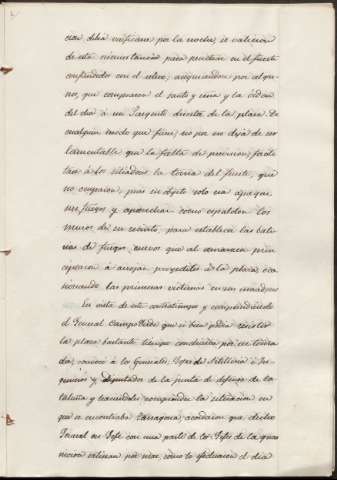 cion debia verificarse por la noche, se valieron
de esta circunstancia para penetrar en el fuerte
confundidos con el relevo; asegurandose por algu-
nos, que compraron el santo y seña y la órden
del dia á un Sargento desertor de la plaza. De
cualquier modo que fuese, no por eso deja de ser
lamentable que la falta de prevision, facili-
tara á los sitiadores la toma del fuerte, que
no ocuparon, pues su objeto solo era apagar
sus fuegos y aprovechar como espaldon los
muros de su recinto, para establecer las bate-
rias de fuegos curvos que al amanecer prin-
cipiaron á arrojar proyectiles á la plaza, oca-
sionando las primeras victimas en sus moradores
En vista de este contratiempo y comprendiendo
el General Campo Verde que si bien podia resistir
la plaza bastante tiempo concluiria por ser toma-
da, convocó á los Generales, Gefes de Artilleria é In-
genieros y diputados de la junta de defensa de Ca-
taluña y haciendoles comprender la situacion en
que se encontraba Tarragona, acordaron que dicho
General en Gefe con una parte de los Gefes de la guar-
nicion salieran por mar, como lo efectuaron el dia